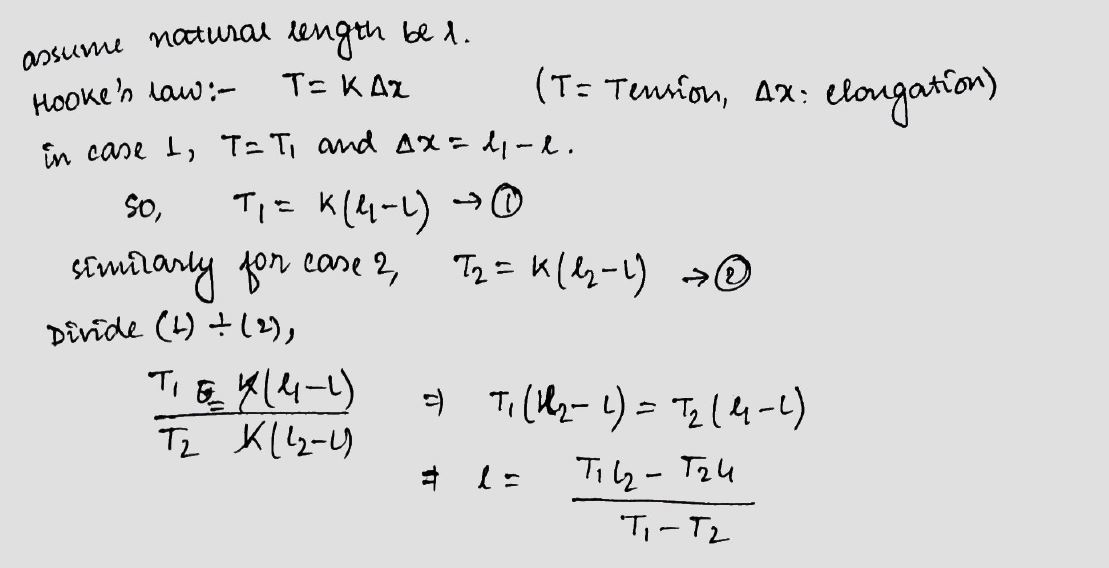 assume natural length be l.
Hooke's law:- T = K Δx (T = Tension, Δx: elongation)
in case 1, T = T₁ and Δx = l₁ - l.
so, T₁ = K(l₁ - l) → ①
similarly for case 2, T₂ = K(l₂ - l) → ②
Divide (1) ÷ (2),
T₁/T₂ = K(l₁ - l)/K(l₂ - l) ⇒ T₁(l₂ - l) = T₂(l₁ - l)
⇒ l = (T₁l₂ - T₂l₁)/(T₁ - T₂)